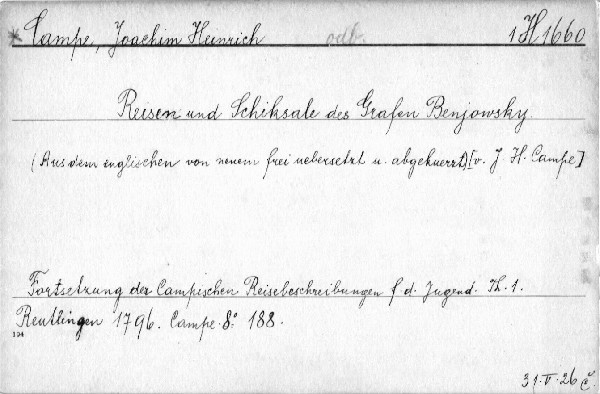 * Campe, Joachim Heinrich odb. 1 H 1660
Reisen und Schiksale des Grafen Benjowsky.
(Aus dem englischen von neuem frei uebersetzt u. abgekuerzt) [v. J. H. Campe]
Fortsetzung der Campischen Reisebeschreibungen f. d. Jugend. Th. 1.
Reutlingen 1796. Campe. 8° 188.
104
31.V.26 Č.